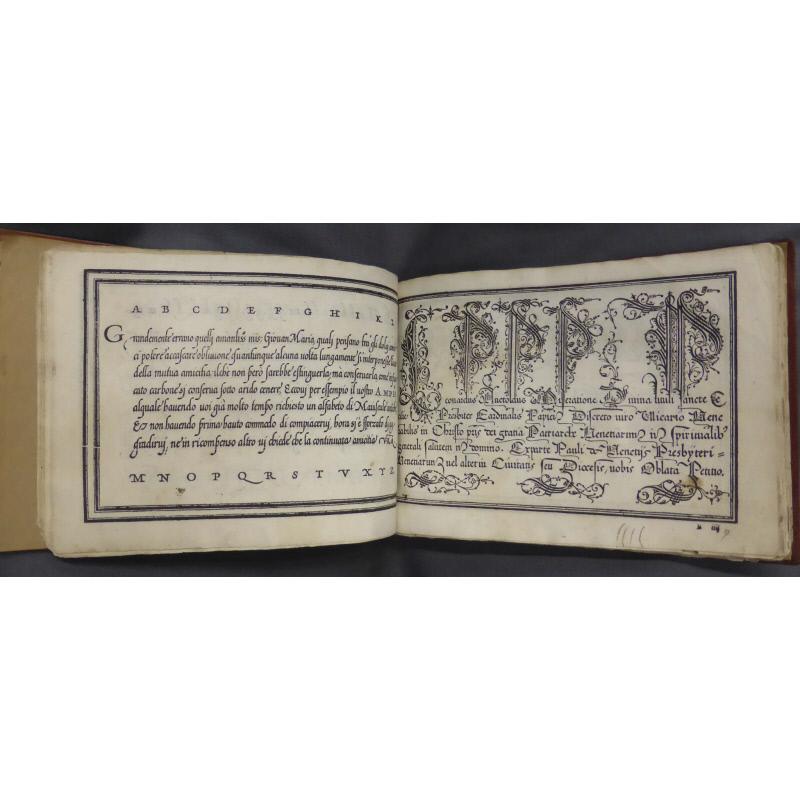 A B C D E F G H I K L
Grandemente errano quelli amantiss. mio Giovan Maria, quali pensano tra gli
a potere accascare oblivione, quantunque alcuna volta lungamente s'interponesse
della mutua amicitia. ilche non però sarebbe estinguerla, ma conservarla, come
cato carbone si conserva sotto arido cenere. Eccovi per essempio il vostro AMPH
alquale havendo voi già molto tempo richiesto un alfabeto di Maiuscole
Et non havendo prima hauto commodo di compiacervi, hora si è sforzato di
gradirvi, ne in ricompenso altro vi chiede che la continuata amicitia
M N O P Q R S T V X Y Z
P P P R
eonardus Bartolinus Miseratione Divina tituli sancte
Presbiter Cardinalis Discreto viro Vicario Vene
rabilis in Christo pris dei gratia Patriarche Venetiarum in spiritualib
generali salutem in Domino. Exparte Pauli de Venetijs Presbyteri=
Venetiarum vel alterius Civitatis seu Diocesis, vobis Oblata Petitio.